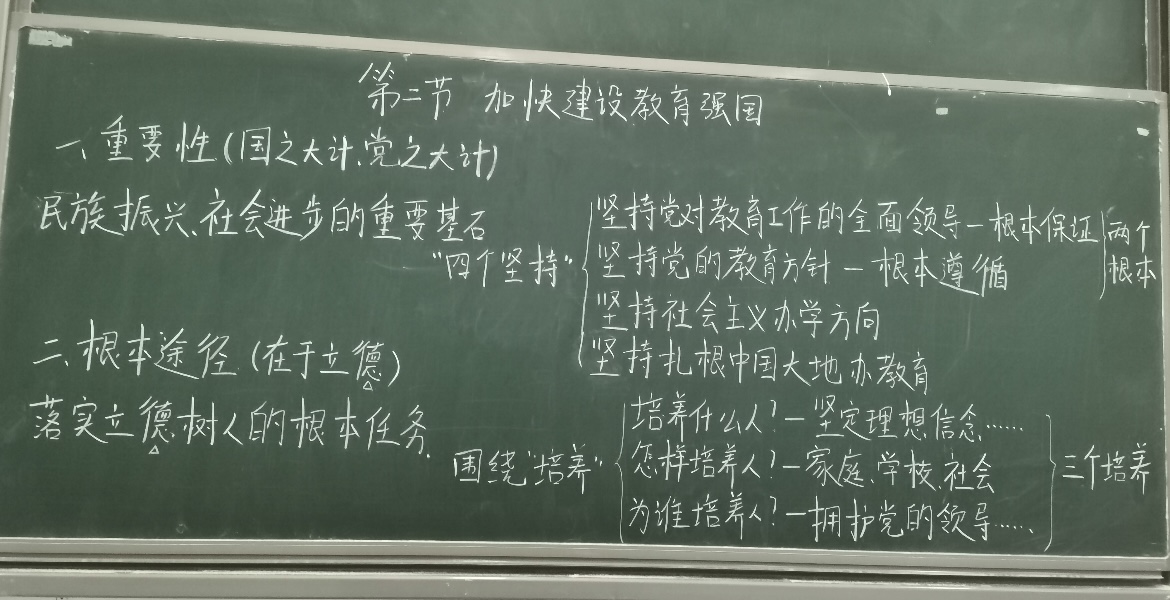 第二节 加快建设教育强国
一、重要性(国之大计、党之大计)
民族振兴、社会进步的重要基石
"四个坚持"
坚持党对教育工作的全面领导—根本保证
坚持党的教育方针—根本遵循
两个
根本
坚持社会主义办学方向
坚持扎根中国大地办教育
二、根本途径(在于立德)
落实立德树人的根本任务.
围绕"培养"
培养什么人?—坚定理想信念……
怎样培养人?—家庭、学校、社会
为谁培养人?—拥护党的领导……
三个培养